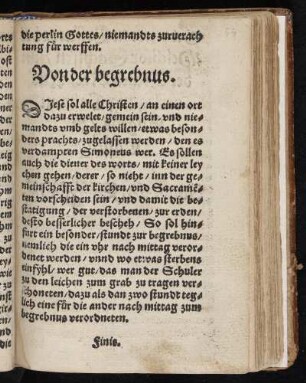 die perlin Gottes / niemandts zurverach
tung für werffen.
Von der begrebnus.
DIese sol alle Christen / an einen ort
dazu erwelet / gemein sein. vnd nie-
mandts vmb gelts willen / etwas beson-
ders prachts / zugelassen werden / den es
verdampten Simoneus wer. Es söllen
auch die diener des worts / mit keiner ley
chen gehen / derer / so nicht / inn der ge-
meinschafft der kirchen / vnd Sacramē-
ten vorscheiden sein / vnd damit die be-
statigung / der verstorbenen / zur erden /
desto besserlicher bescheh / So sol hin-
furt ein besonder / stunde zur begrebnus /
nemlich die ein vhr nach mittag veror-
denet werden / vnnd wo etwas sterbens
einfyhl / wer gut / das man der Schuler
zu den leichen zum grab zu tragen ver-
schoneten / dazu als dan zwo stundt teg-
lich eine für die ander nach mittag zum
begrebnus verordneten.
Finis.